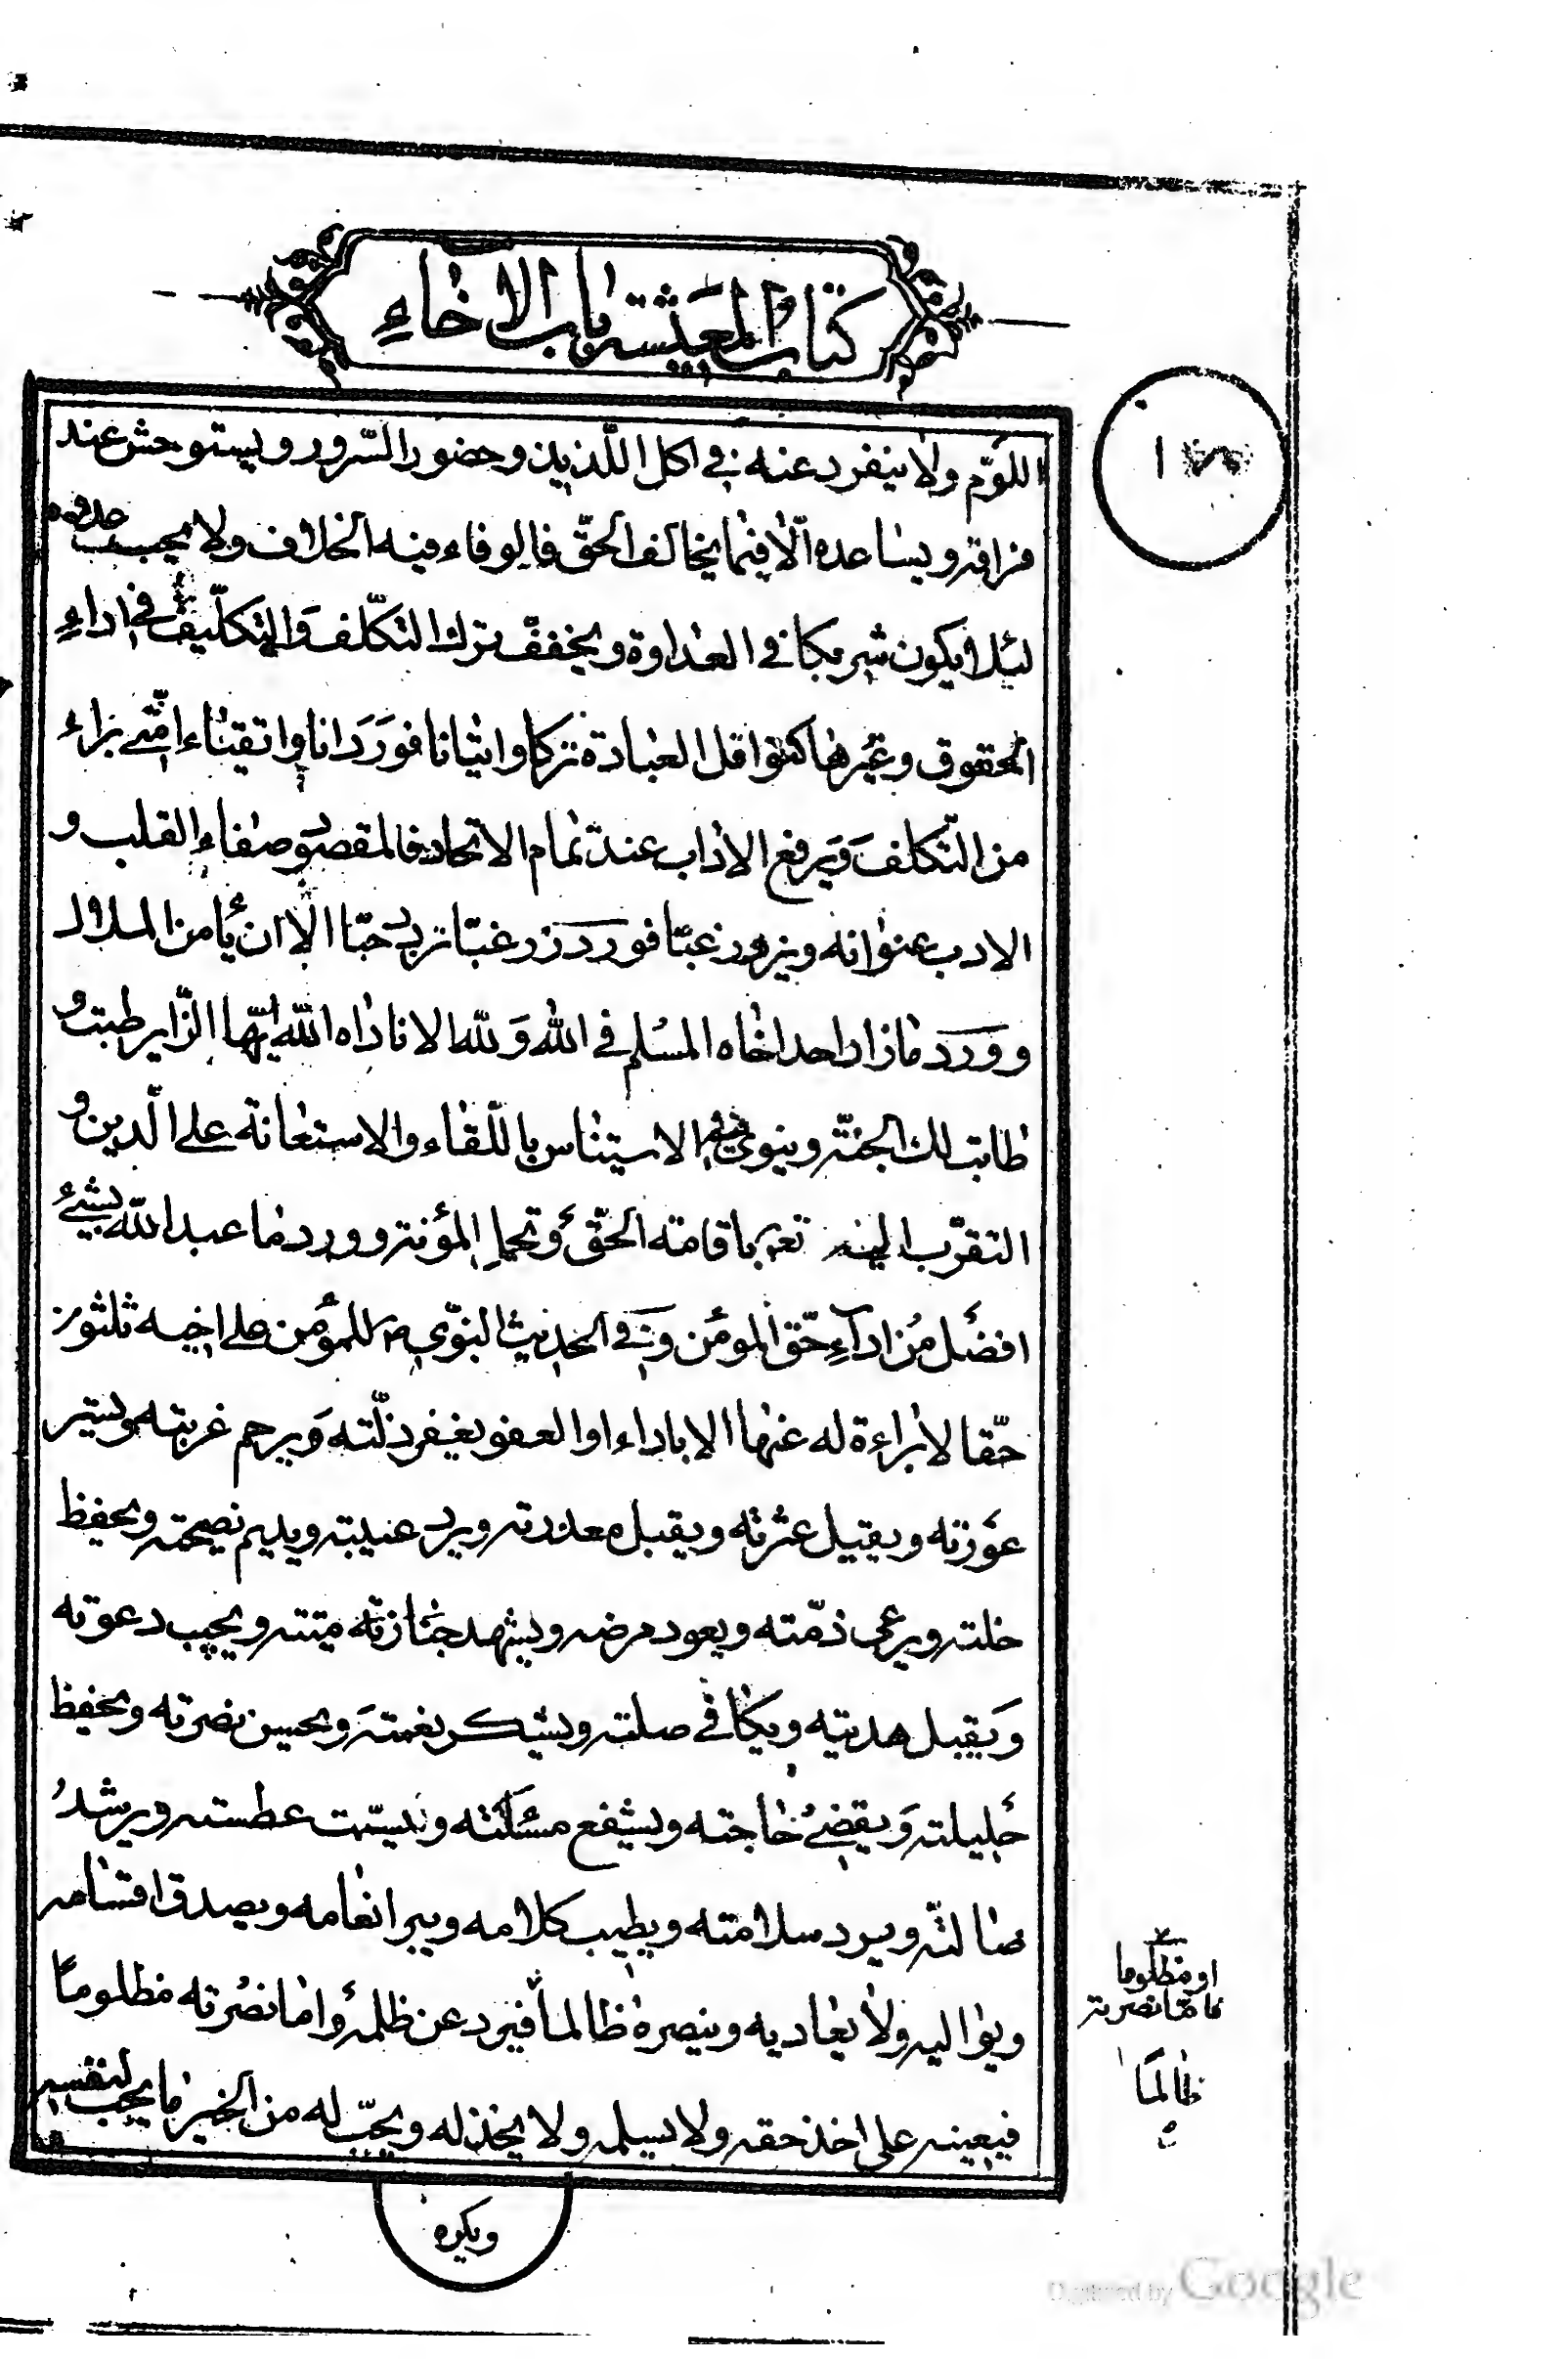 كتاب المعيشة باب الاخاء
اللوم ولا ينفرد عنه في اكل اللذيذ وحضور السرور ويستوحش عند
فراقه ويساعده الا فيما يخالف الحق فالوفاء فيه الخلاف ولا يحب عدوه
لئلا يكون شريكا في العداوة ويخفف بترك التكلف والتكليف في اداء
الحقوق وغيرها كنوافل العبادة تركا واتيانا فورد انا واتقياء امتي براء
من التكلف ويرفع الاداب عند تمام الاتحاد فالمقصود صفاء القلب و
الادب عنوانه ويزور غبا فورد زر غبا تزدد حبا الا ان يأمن الملال
وورد ما زار احد اخاه المسلم في الله ولله الا ناداه الله ايها الزاير طبت و
طابت لك الجنة وينوي فيه الاستيناس باللقاء والاستعانة على الدين و
التقرب اليه تعالى باقامة الحق وتحمل المؤنة وورد ما عبد الله بشيء
افضل من اداء حق المومن وفي الحديث النبوي ص للمؤمن على اخيه ثلثون
حقا لا براءة له عنها الا باداء او العفو يغفر زلته ويرحم غربته ويستر
عورته ويقيل عثرته ويقبل معذرته ويرد غيبته ويديم نصيحته ويحفظ
خلته ويرعى ذمته ويعود مرضه ويشهد جنازته ميتته ويجيب دعوته
ويقبل هديته ويكافي صلته ويشكر نعمته ويحسن نصرته ويحفظ
حليلته ويقضي حاجته ويشفع مسئلته ويسمت عطسته ويرشد
ضالته ويرد سلامته ويطيب كلامه ويبر انعامه ويصدق اقسامه
ويواليه ولا يعاديه وينصره ظالما فيرد عن ظلمه واما نصرته مظلوما
فيعينه على اخذ حقه ولا يسلمه ولا يخذله ويحب له من الخير ما يحب لنفسه
او مظلوما
فاما نصرته
ظالما
ويكره
Digitized by Google